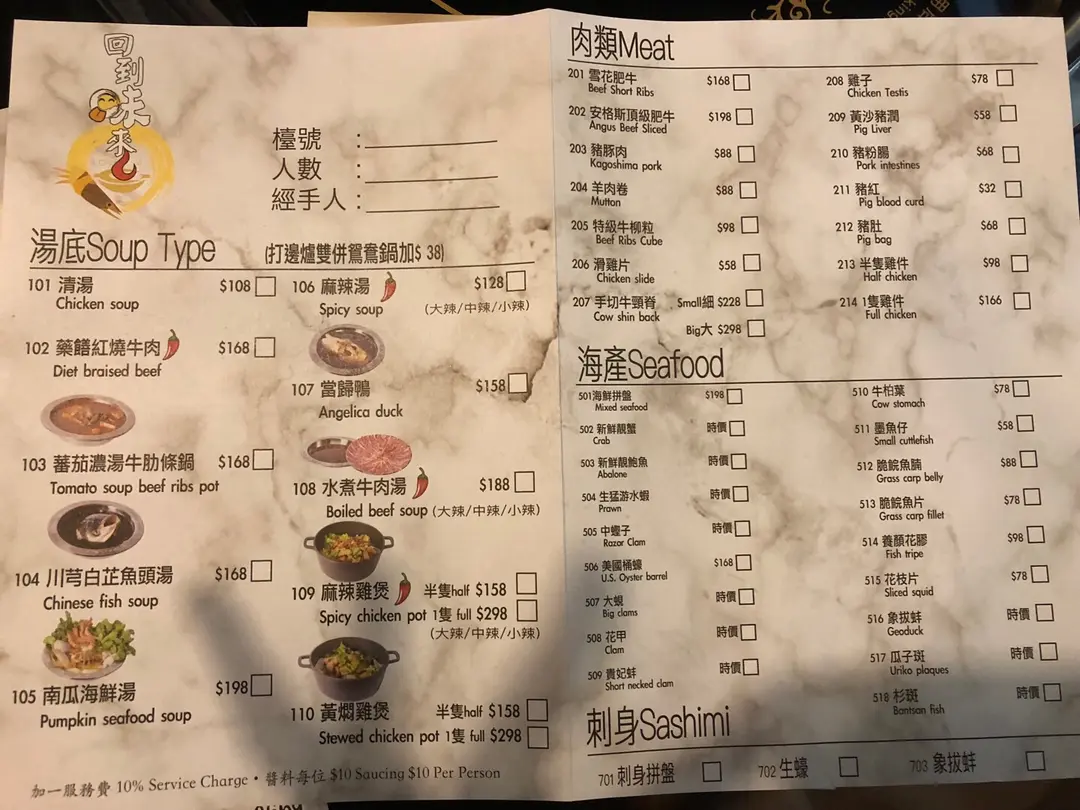 回到味來
檯號 :
人數 :
經手人 :
湯底Soup Type (打邊爐雙併鴛鴦鍋加$ 38)
101 清湯 $108
Chicken soup
102 藥饍紅燒牛肉 $168
Diet braised beef
103 蕃茄濃湯牛肋條鍋 $168
Tomato soup beef ribs pot
104 川芎白芷魚頭湯 $168
Chinese fish soup
105 南瓜海鮮湯 $198
Pumpkin seafood soup
106 麻辣湯 $128
Spicy soup (大辣/中辣/小辣)
107 當歸鴨 $158
Angelica duck
108 水煮牛肉湯 $188
Boiled beef soup (大辣/中辣/小辣)
109 麻辣雞煲 半隻half $158
Spicy chicken pot 1隻 full $298
(大辣/中辣/小辣)
110 黃燜雞煲 半隻half $158
Stewed chicken pot 1隻 full $298
加一服務費 10% Service Charge • 醬料每位 $10 Saucing $10 Per Person
肉類Meat
201 雪花肥牛 $168
Beef Short Ribs
202 安格斯頂級肥牛 $198
Angus Beef Sliced
203 豬豚肉 $88
Kagoshima pork
204 羊肉卷 $88
Mutton
205 特級牛柳粒 $98
Beef Ribs Cube
206 滑雞片 $58
Chicken slide
207 手切牛頸脊 Small細 $228
Cow shin back
Big大 $298
208 雞子 $78
Chicken Testis
209 黃沙豬潤 $58
Pig Liver
210 豬粉腸 $68
Pork intestines
211 豬紅 $32
Pig blood curd
212 豬肚 $68
Pig bag
213 半隻雞件 $98
Half chicken
214 1隻雞件 $166
Full chicken
海產Seafood
501海鮮拼盤 $198
Mixed seafood
502 新鮮靚蟹 時價
Crab
503 新鮮靚鮑魚 時價
Abalone
504 生猛游水蝦 時價
Prawn
505 中蟶子 時價
Razor Clam
506 美國桶蠔 $168
U.S. Oyster barrel
507 大蜆 時價
Big clams
508 花甲 時價
Clam
509 貴妃蚌 時價
Short necked clam
510 牛柏葉 $78
Cow stomach
511 墨魚仔 $58
Small cuttlefish
512 脆鯇魚腩 $88
Grass carp belly
513 脆鯇魚片 $78
Grass carp fillet
514 養顏花膠 $98
Fish tripe
515 花枝片 $78
Sliced squid
516 象拔蚌 時價
Geoduck
517 瓜子斑 時價
Uriko plaques
518 杉斑 時價
Bantsan fish
刺身Sashimi
701 刺身拼盤
702 生蠔
703 象拔蚌